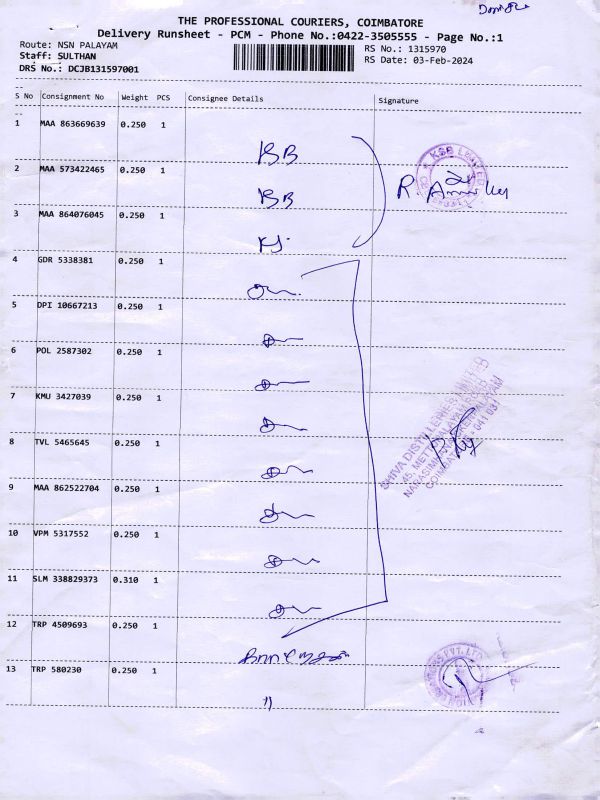 THE PROFESSIONAL COURIERS, COIMBATORE
Delivery Runsheet - PCM - Phone No.:0422-3505555 - Page No.:1
Route: NSN PALAYAM
Staff: SULTHAN
DRS No.: DCJB131597001
RS No.: 1315970
RS Date: 03-Feb-2024
--
S No Consignment No Weight PCS Consignee Details Signature
--
1 MAA 863669639 0.250 1
2 MAA 573422465 0.250 1
3 MAA 864076045 0.250 1
4 GDR 5338381 0.250 1
5 DPI 10667213 0.250 1
6 POL 2587302 0.250 1
7 KMU 3427039 0.250 1
8 TVL 5465645 0.250 1
9 MAA 862522704 0.250 1
10 VPM 5317552 0.250 1
11 SLM 338829373 0.310 1
12 TRP 4509693 0.250 1
13 TRP 580230 0.250 1
KSB LIMITED
SHIVA DISTILLERIES LIMITED
COIMBATORE 641 031
PVT. LTD